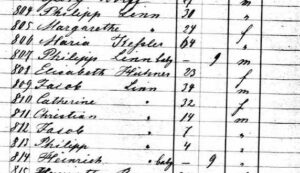 804 Philipp Linn 30 "
805 Margarethe " 24 f
806 Maria Kessler 64 "
807 Philipp Linn baby - 9 m
808 Elisabeth Hübner 23 f
809 Jacob Linn 39 m
810 Catherine " 32 f
811 Christian " 14 m
812 Jacob " 7 "
813 Philipp " 4 "
814 Heinrich " baby - 9 "
815